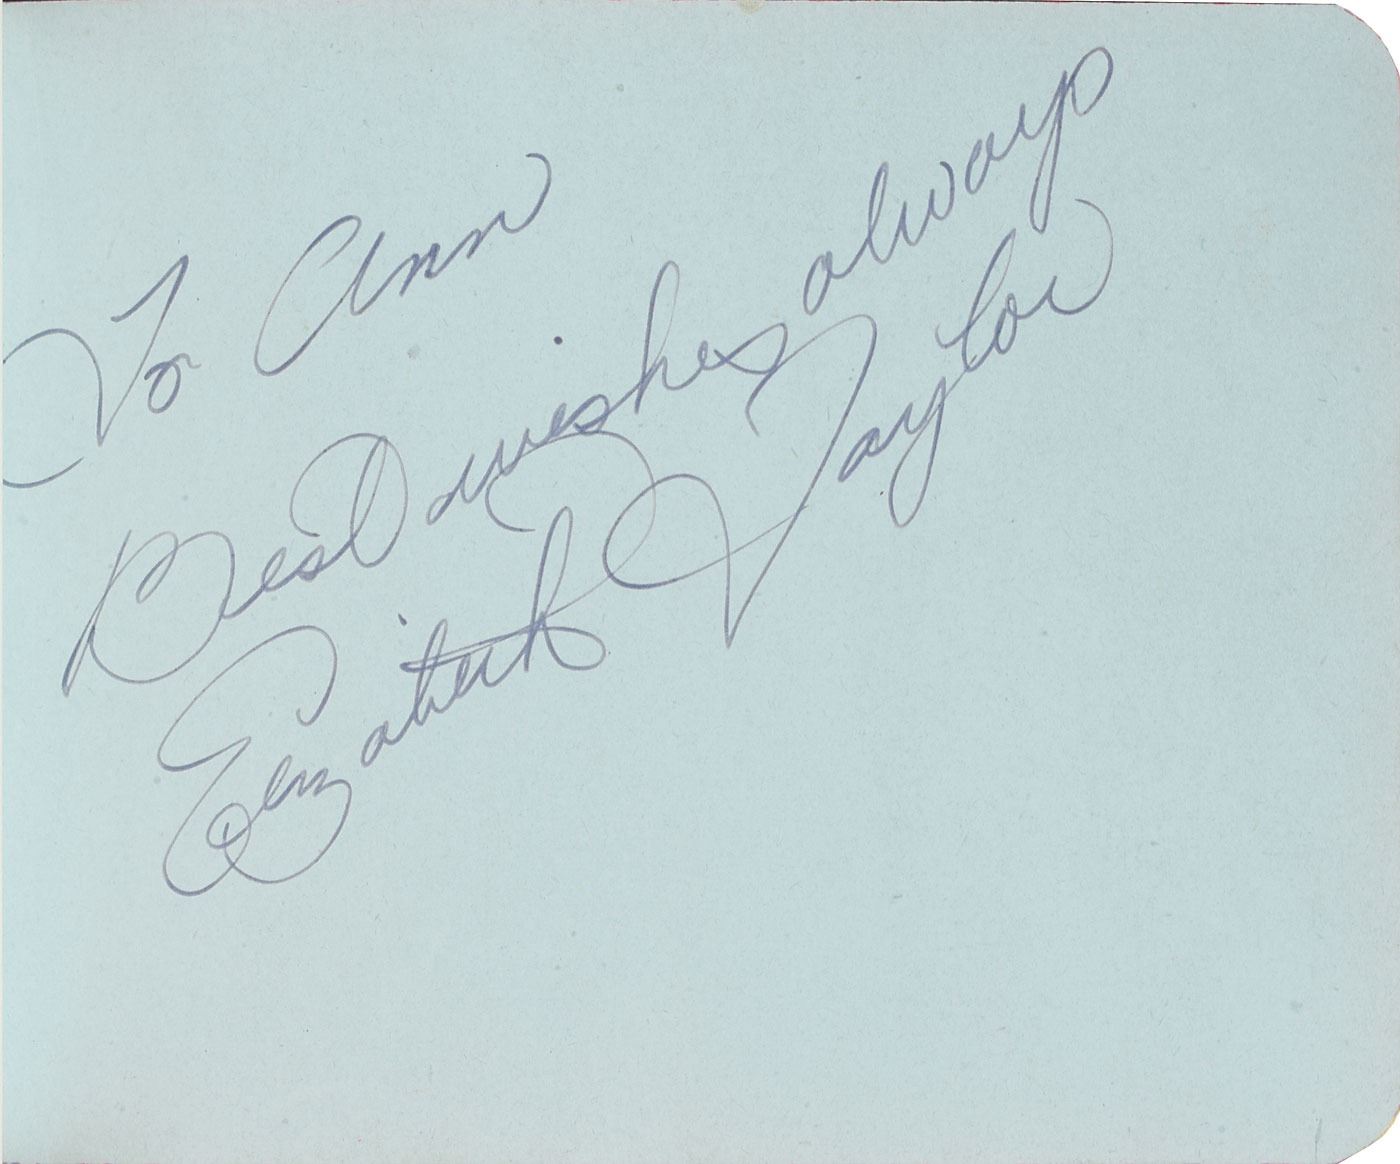 To Ann
Best wishes always
Elizabeth Taylor